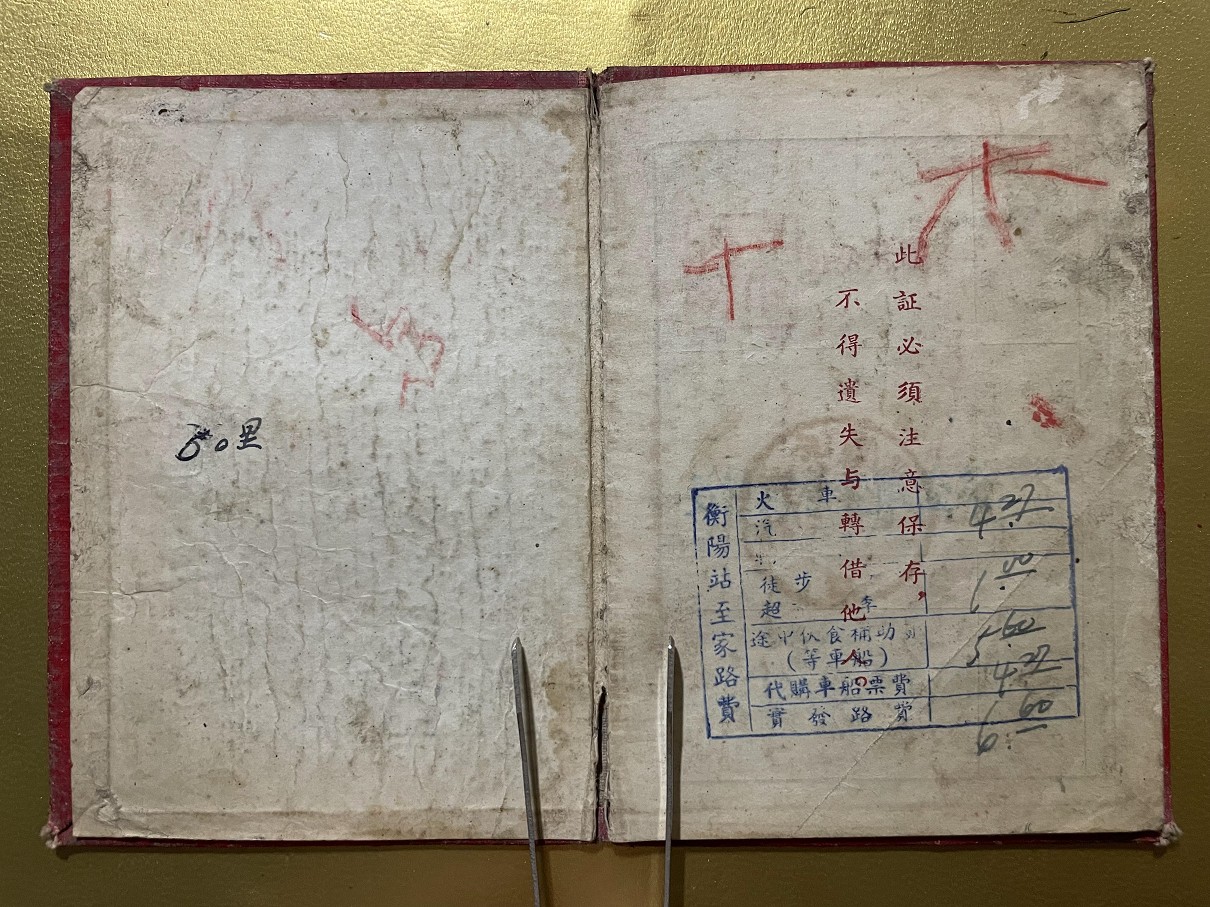 50里
木
十
此証必須注意保存，
不得遺失与轉借他人。
衡陽站至家路費
火車 4.27
汽
徒步 1.00
超 李
途中伙食補助 5.60
(等車船)
代購車船票費 4.27
實發路費 6.60